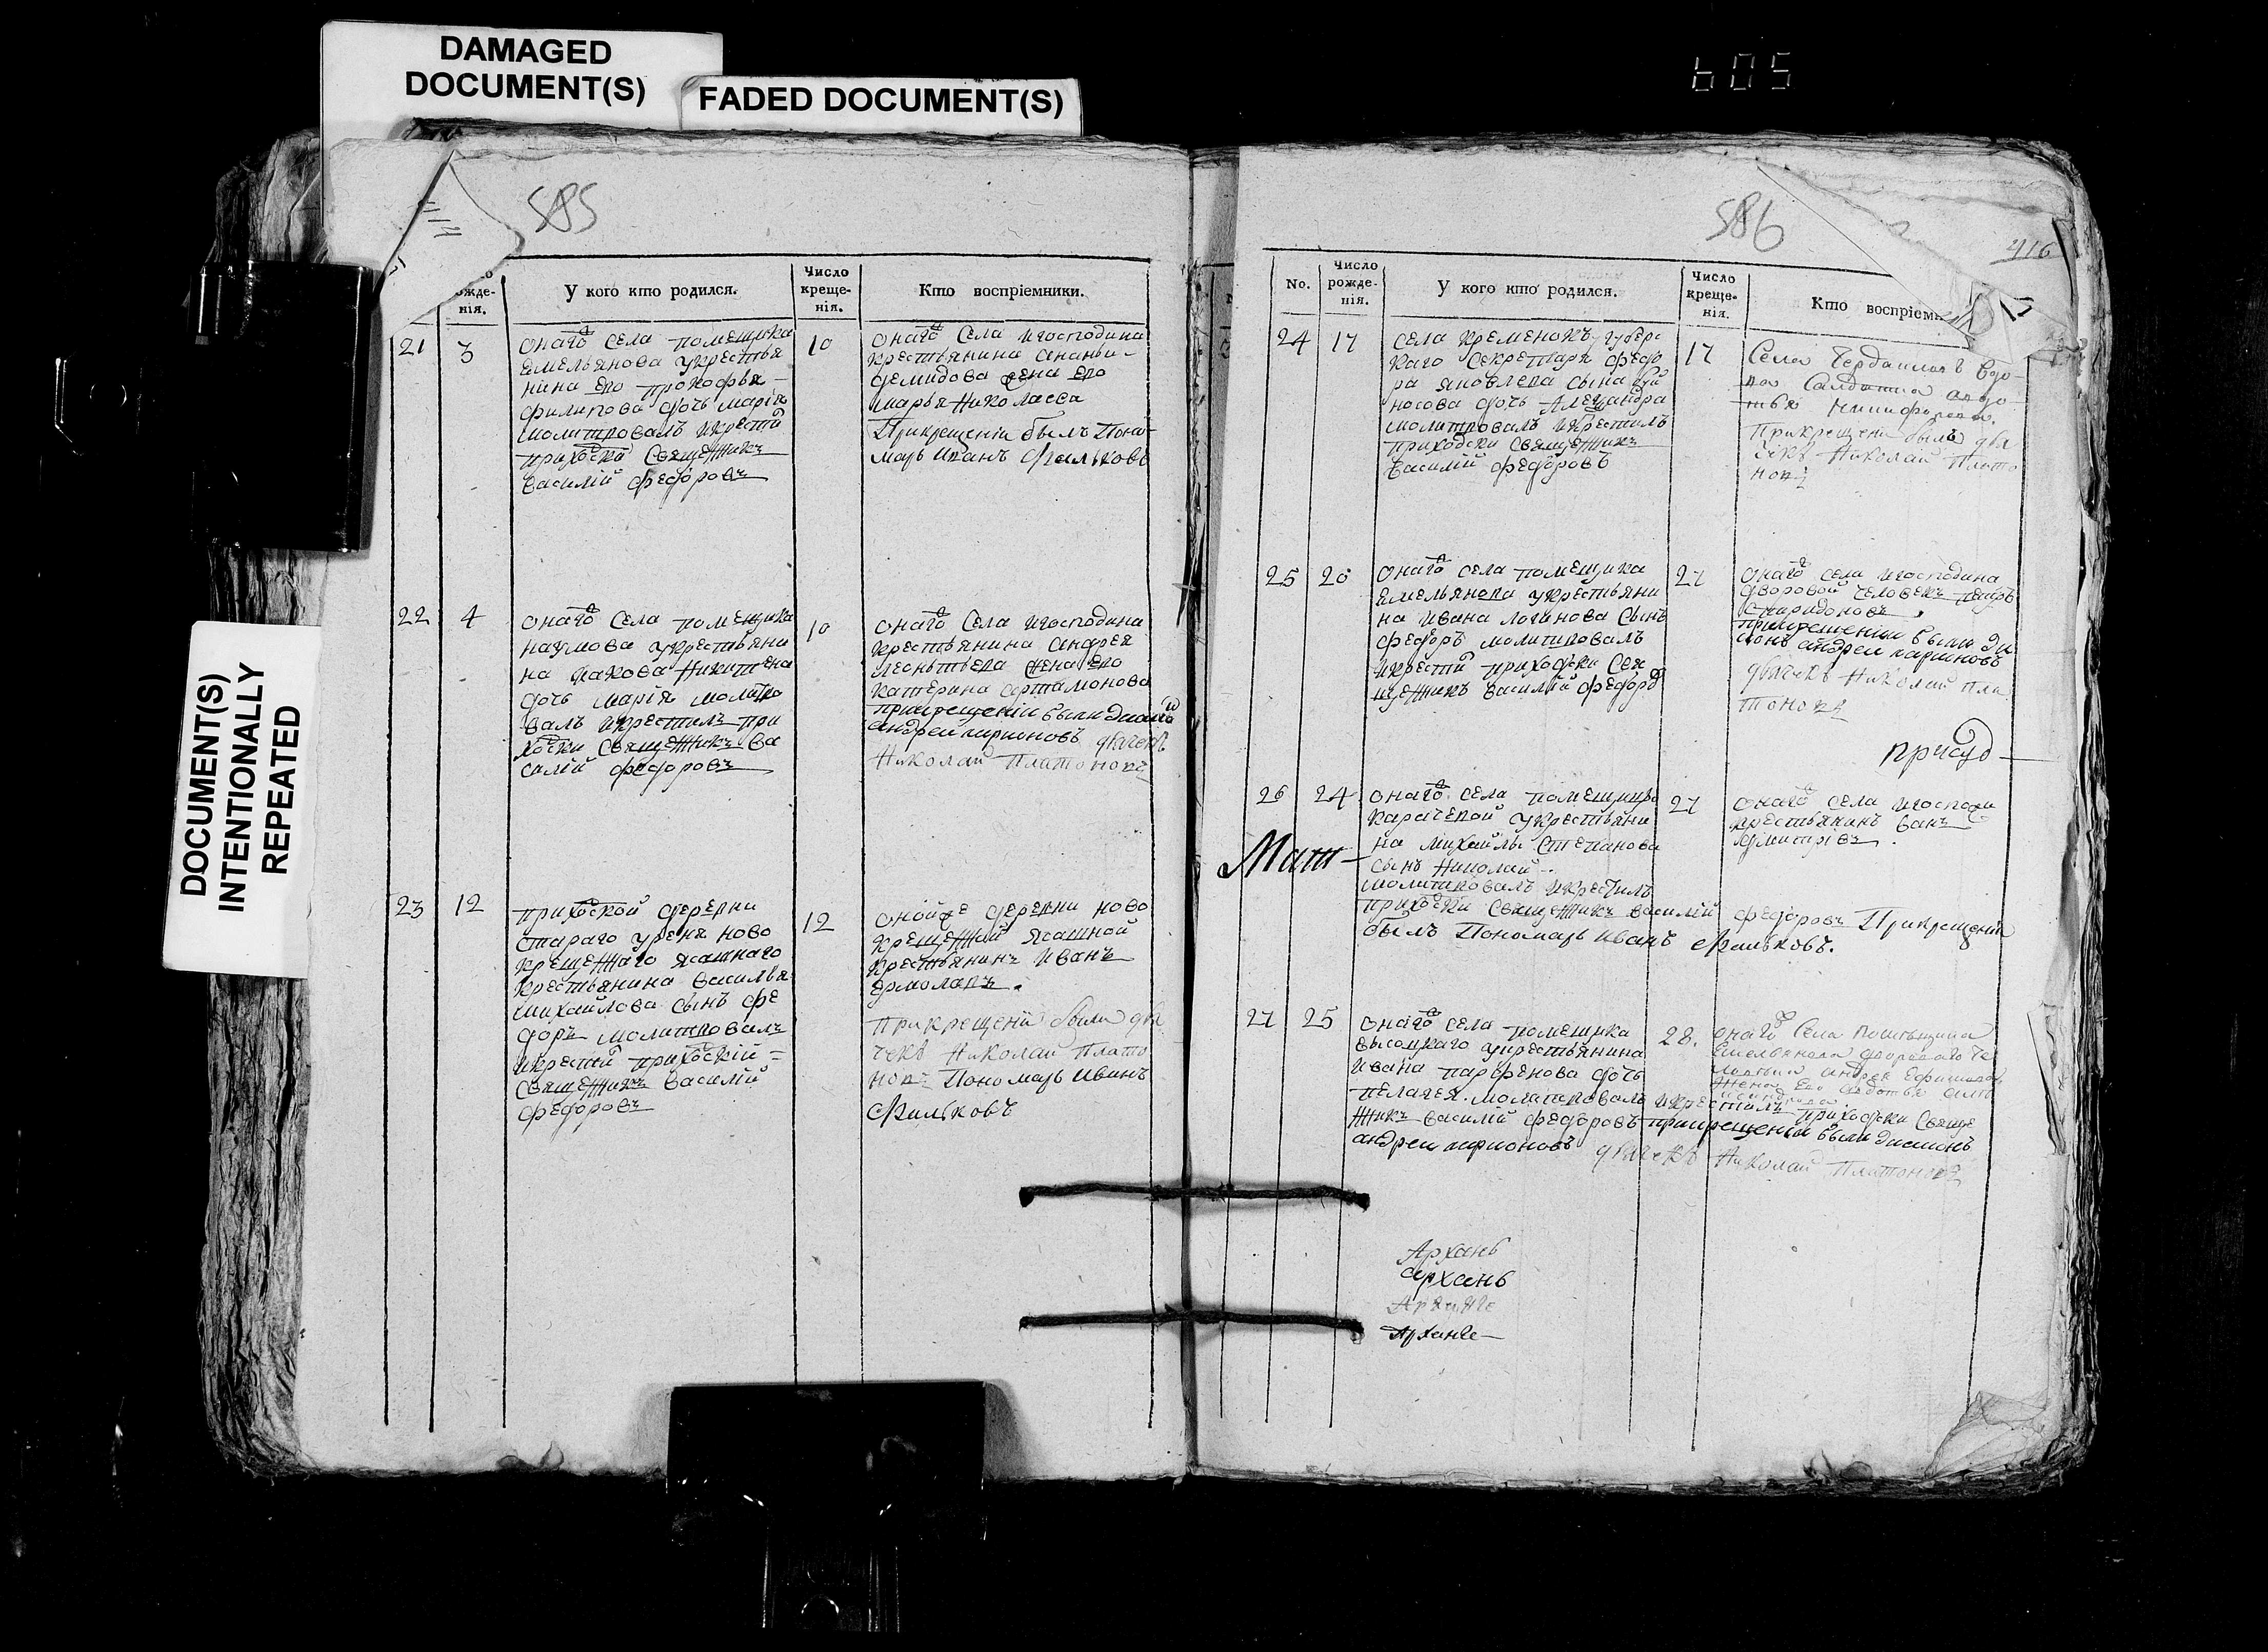 DAMAGED
DOCUMENT(S)
FADED DOCUMENT(S)
605
DOCUMENT(S)
INTENTIONALLY
REPEATED
585
рожде-
нія.
У кого кто родился.
Число
креще-
нія.
Кто воспріемники.
21
3
онаго села помещика
Емельянова укрестья
нина его прокофья
филипова дочь марія
молитвовалъ икрести
приходской священникъ
василій федоровъ
10
онаго села игосподина
крестьянина ананьи
демидова жена его
марья николаева
Прикрещеніи былъ Поно
марь иванъ Фильковъ
22
4
онаго села помещика
наумова укрестьяни
на иакова никитина
дочь марія молитво
валъ икрестилъ при
ходски священникъ ва
силій федоровъ
10
онаго села игосподина
крестьянина андрея
леонтьева жена его
катерина артамонова
прикрещеніи были дианонъ
андреи ларионовъ дьячекъ
Николаи Платоновъ
23
12
приходской деревни
стараго уреня ново
крещеннаго ясашнаго
крестьянина василья
михайлова сынъ фе
доръ молитвовалъ
икрести приходскій
священникъ василій
федоровъ
12
онойже деревни ново
крещенной ясашной
крестьянинъ иванъ
ермолаевъ.
Прикрещеніи были дья
чекъ Николаи Плато
новъ Пономарь иванъ
Фильковъ
586
416
No.
Число
рожде-
нія.
У кого кто родился.
Число
креще-
нія.
Кто воспріемн
24
17
села кременокъ губерс
каго секретаря федо
ра яковлева сына
носова дочь Александра
молитвовалъ икрестилъ
приходски священникъ
василій федоровъ
17
Села Чердаклов вдо-
ва Салдатка авдо
тья Никифорова.
Прикрещеніи былъ дья
чекъ Николай Плато
новъ
25
20
онаго села помещика
Емельянова укрестьяни
на ивана логинова сынъ
федоръ молитвовалъ
икрести приходски свя
щенникъ василій федоров
27
онаго села игосподина
дворовой человекъ петръ
спиридоновъ.
прикрещеніи были диа
конъ андреи ларионовъ
дьячекъ Николай Пла
тоновъ
присуд
26
24
онаго села помещицы
карачевой укрестьяни
на михайлы степанова
сынъ николай.
молитвовалъ икрестилъ
приходски священникъ василій федоровъ Прикрещеніи
былъ Пономарь иванъ Фильковъ.
27
онаго села игосподи
крестьянинъ
дмитріевъ.
Мат
27
25
онаго села помещика
высоцкаго укрестьянина
ивана парфенова дочь
пелагея. молитвовалъ икрестилъ приходски свяще
нникъ василій федоровъ прикрещеніи были диаконъ
андреи ларионовъ дьячекъ Николай Платоновъ
28.
онаго Села Помещика
Емельянова двороваго че
ловека андрея
жена Его авдотья
Архань
архань
Архан